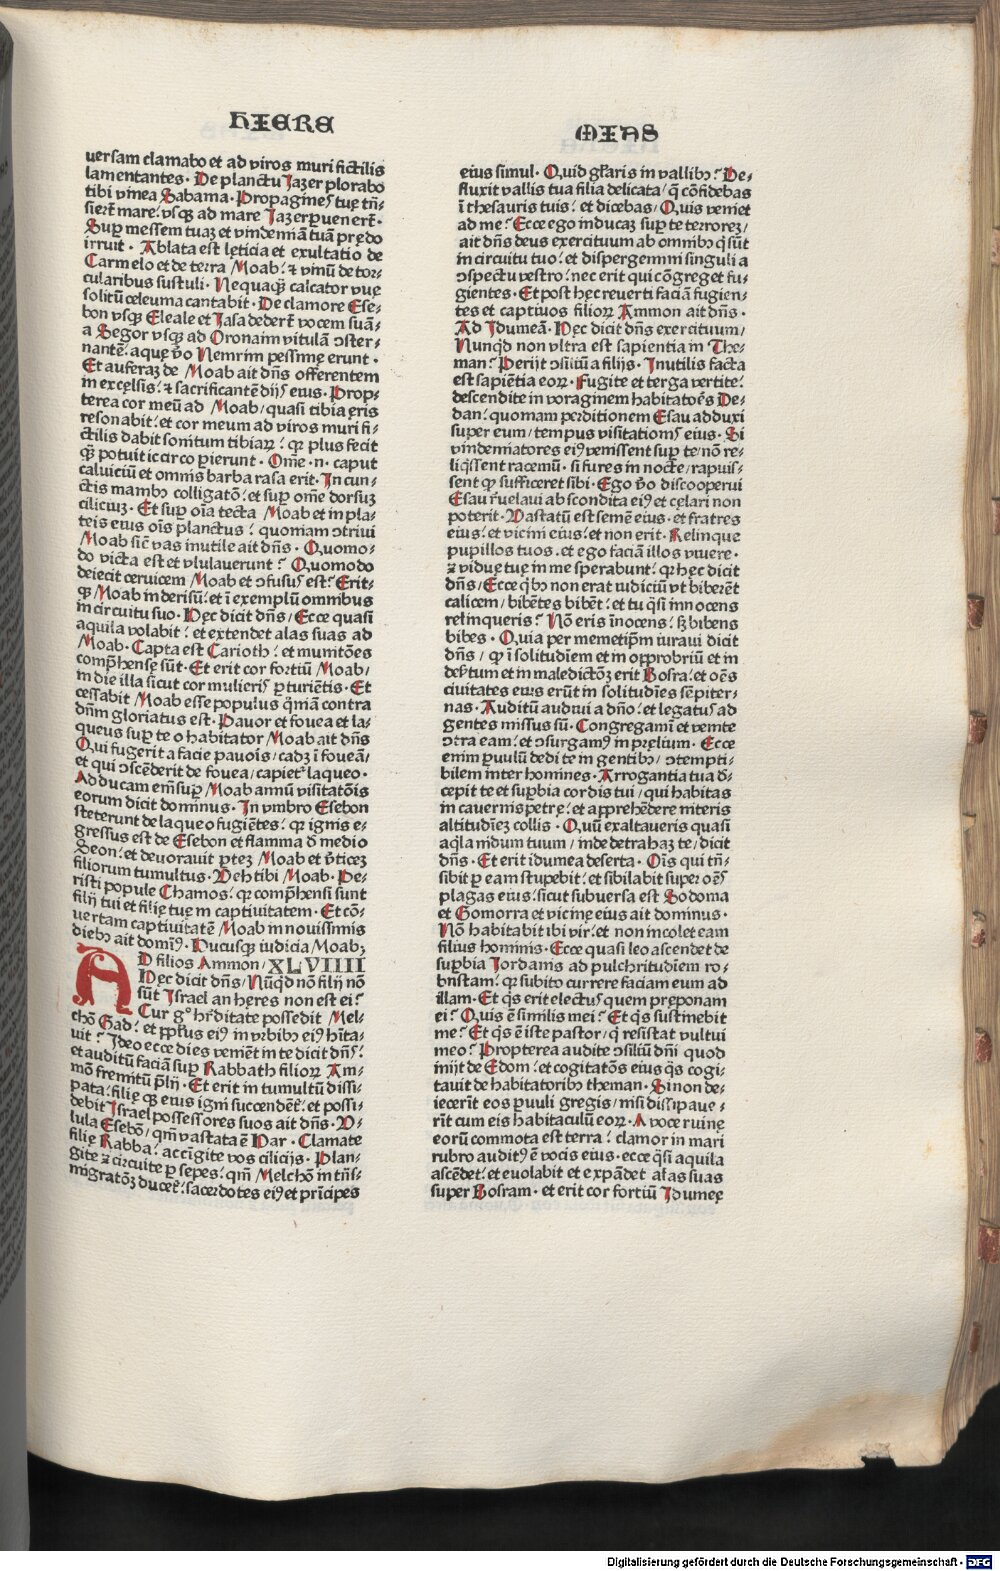 HIERE
MIAS
uersam clamabo et ad viros muri fictilis
lamentantes. De planctu Jazer plorabo
tibi vinea Sabama. Propagines tuę trā-
sierūt mare: vsqꝫ ad mare Jazer puenerūt.
Sup messem tuaꝫ et vindemiā tuā prędo
irruit. Ablata est lęticia et exultatio de
Carmelo et de terra Moab: ⁊ vinū de tor-
cularibus sustuli. Nequaqꝫ calcator vuę
solitū celeuma cantabit. De clamore Ese-
bon vsqꝫ Eleale et Jasa dederūt vocem suā-
a Segor vsqꝫ ad Oronaim vitulā ↄster-
nantē. aquę v̄o Nemrim pessimę erunt.
Et auferaꝫ de Moab ait dn̄s offerentem
in excęlsis: ⁊ sacrificantē dijs eius. Prop-
terea cor meū ad Moab/quasi tibia ęris
resonabit: et cor meum ad viros muri fi-
ctilis dabit sonitum tibiaꝝ: qꝛ plus fecit
qꝫ potuit iccirco perierunt. Om̄e .n. caput
caluiciū et omnis barba rasa erit. In cun-
ctis manibꝫ colligatō: et sup om̄e dorsuꝫ
ciliciuꝫ. Et sup oīa tecta Moab et in pla-
teis eius oīs planctus: quoniam ↄtriui
Moab sicut vas inutile ait dn̄s. Quomo-
do victa est et vlulauerunt? Quomodo
deiecit ceruicem Moab et ↄfusus est? Erit-
qꝫ Moab in derisū: et ī exemplū omnibus
in circuitu suo. Hęc dicit dn̄s/Ecce quasi
aquila volabit: et extendet alas suas ad
Moab. Capta est Carioth: et munitōes
comp̄hensę sūt. Et erit cor fortiū Moab/
in die illa sicut cor mulieris pturiētis. Et
cessabit Moab esse populus qm̄iā contra
dn̄m gloriatus est. Pauor et fouea et la-
queus sup te o habitator Moab ait dn̄s
Qui fugerit a facie pauoīs: cadꝫ ī foueā:
et qui ↄscēderit de fouea/capietur laqueo.
Adducam em̄ sup Moab annū visitatōis
eorum dicit dominus. In vmbro Esebon
steterunt de laqueo fugiētes: qꝛ ignis e-
gressus est de Esebon et flamma d̄ medio
Seon: et deuorauit pteꝫ Moab et v̄ticeꝫ
filiorum tumultus. Veh tibi Moab. Pe-
risti popule Chamos: qꝛ comp̄hensi sunt
filij tui et filię tuę in captiuitatem. Et cō-
uertam captiuitatē Moab in nouissimis
diebꝫ ait domi⁹. Hucusqꝫ iudicia Moab;
AD filios Ammon/ XLVIIII
Hęc dicit dn̄s/Nūqd nō filij nō
sūt Israel an hęres non est ei?
Cur gͦ hr̄editate possedit Mel-
chō Gad: et ppłus ei⁹ in vrbibꝫ ei⁹ hīta-
uit? Ideo ecce dies veniēt in te dicit dn̄s:
et auditū faciā sup Rabbath filioꝝ Am-
mō fremitū pl̄ij. Et erit in tumultū dissi-
pata: filię qꝫ eius igni succendēt: et possi-
debit Israel possessores suos ait dn̄s. V-
lula Esebō/ qm̄ vastata ē Har. Clamate
filię Rabba: accīgite vos cilicijs. Plan-
gite ⁊ circuite p sepes: qm̄ Melchō in trās-
migratōꝫ ducet: sacerdotes ei⁹ et prīcipes
eius simul. Quid glaris in vallibꝫ? De-
fluxit vallis tua filia delicata/ q̄ cōfidebas
ī thesauris tuis: et dicebas/ Quis veniet
ad me? Ecce ego inducaꝫ sup te terroreꝫ/
ait dn̄s deus exercituum ab omnibꝫ q̄ sūt
in circuitu tuo: et dispergemini singuli a
ↄspectu vestro: nec erit qui cōgreget fu-
gientes. Et post hęc reuerti faciā fugien-
tes et captiuos filioꝝ Ammon ait dn̄s.
Ad Idumeā. Hęc dicit dn̄s exercituum/
Nunqd non vltra est sapientia in The-
man? Perijt ↄsiliū a filijs. Inutilis facta
est sapiētia eoꝝ. Fugite et terga vertite:
descendite in voraginem habitatoēs De-
dan: quoniam perditionem Esau adduxi
super eum/tempus visitationis eius. Si
vindemiatores ei⁹ venissent sup te/nō re-
liqssent racemū. si fures in nocte/rapuis-
sent qꝫ sufficeret sibi. Ego v̄o discooperui
Esau r̄uelaui abscondita ei⁹ et cęlari non
poterit. Vastatū est semē eius. et fratres
eius: et vicini eius: et non erit. Relinque
pupillos tuos. et ego faciā illos viuere.
⁊ viduę tuę in me sperabunt: qꝛ hęc dicit
dn̄s/ Ecce qbꝫ non erat iudiciū vt biberēt
calicem/ bibētes bibēt: et tu qsi innocens
relinqueris? Nō eris īnocens: sꝫ bibens
bibes. Quia per memetipm̄ iuraui dicit
dn̄s/ qꝫ ī solitudīem et in opprobriū et in
desertum et in maledictōꝫ erit Bosra: et oēs
ciuitates eius erūt in solitudīes sēpiter-
nas. Auditū audiui a dn̄o: et legatus ad
gentes missus sū. Congregamī et venite
ↄtra eam: et ↄsurgam⁹ in pręlium. Ecce
enim paruulū dedi te in gentibꝫ: ↄtempti-
bilem inter homines. Arrogantia tua d̄-
cepit te et supbia cordis tui/qui habitas
in cauernis petrę: et apprehēdere niteris
altitudīeꝫ collis. Quū exaltaueris quasi
aqla nidum tuum/inde detrahaꝫ te/dicit
dn̄s. Et erit idumea deserta. Oīs qui trā-
sibit p eam stupebit: et sibilabit super oēs
plagas eius: sicut subuersa est Sodoma
et Gomorra et vicinę eius ait dominus.
Nō habitabit ibi vir: et non incolet eam
filius hominis. Ecce quasi leo ascendet de
supbia Jordanis ad pulchritudīem ro-
bustam: qꝛ subito currere faciam eum ad
illam. Et qs erit electus quem preponam
ei? Quis ē similis mei? Et qs sustinebit
me? Et qs ē iste pastor/ q resistat vultui
meo? Propterea audite ↄsiliū dn̄i quod
inijt de Edom: et cogitatōs eius qs cogi-
tauit de habitatoribꝫ theman. Si non de-
iecerīt eos puuli gregis/nisi dissipaue-
rīt cum eis habitaculū eoꝝ. A voce ruinę
eorū commota est terra: clamor in mari
rubro audit⁹ ē vocis eius. ecce qsi aquila
ascēdet: et euolabit et expādet alas suas
super Bosram. et erit cor fortiū Idumeę
Digitalisierung gefördert durch die Deutsche Forschungsgemeinschaft - DFG